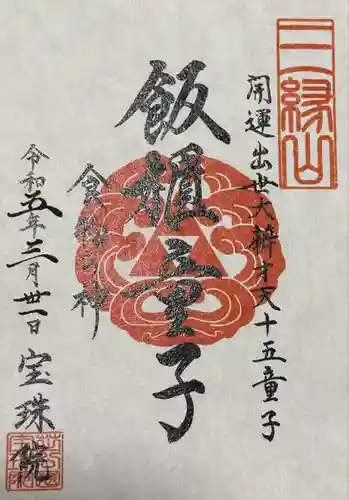 三縁山
開運出世大辨才天十五童子
飯櫃童子
食物の神
令和五年三月卅一日
宝珠院